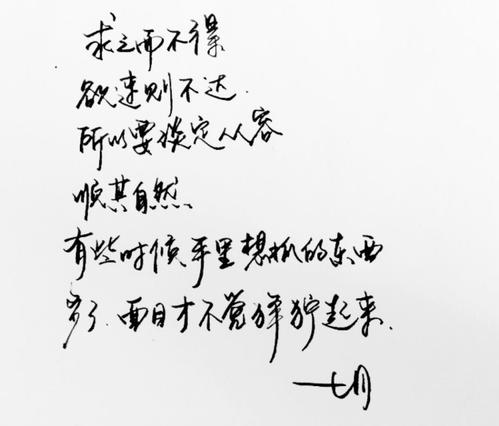 求之而不得
欲速则不达.
所以要淡定从容
顺其自然.
有些时候手里想抓的东西
多了.面目才不觉狰狞起来.
—七月